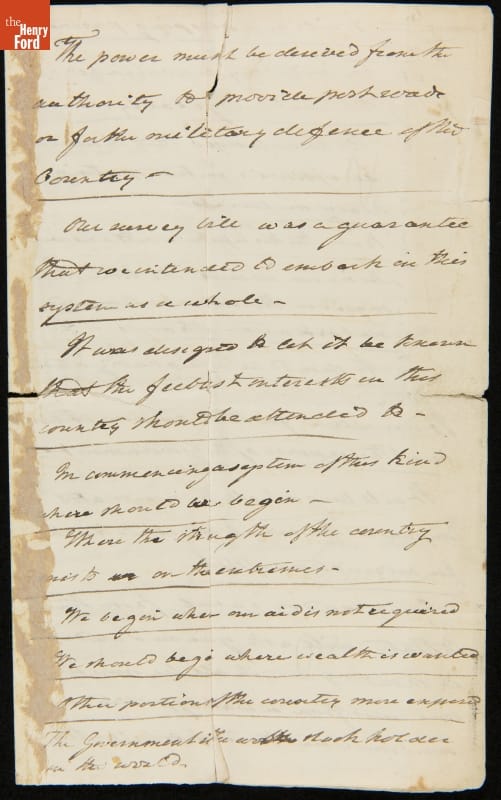 the
Henry
Ford
The power must be derived from the
authority to provide post roads
or for the military defence of the
Country —
Our survey bill was a guarantee
that we intended to embark in this
system as a whole —
It was designed to let it be known
that the feeblest interests in this
country should be attended to —
In commencing a system of this kind
where should we begin —
Where the strength of the country
exists or on the extremes —
We begin where our aid is not required
We should begin where wealth is wanted
Other portions of the country more exposed
The Government the worst stock holder
in the world.